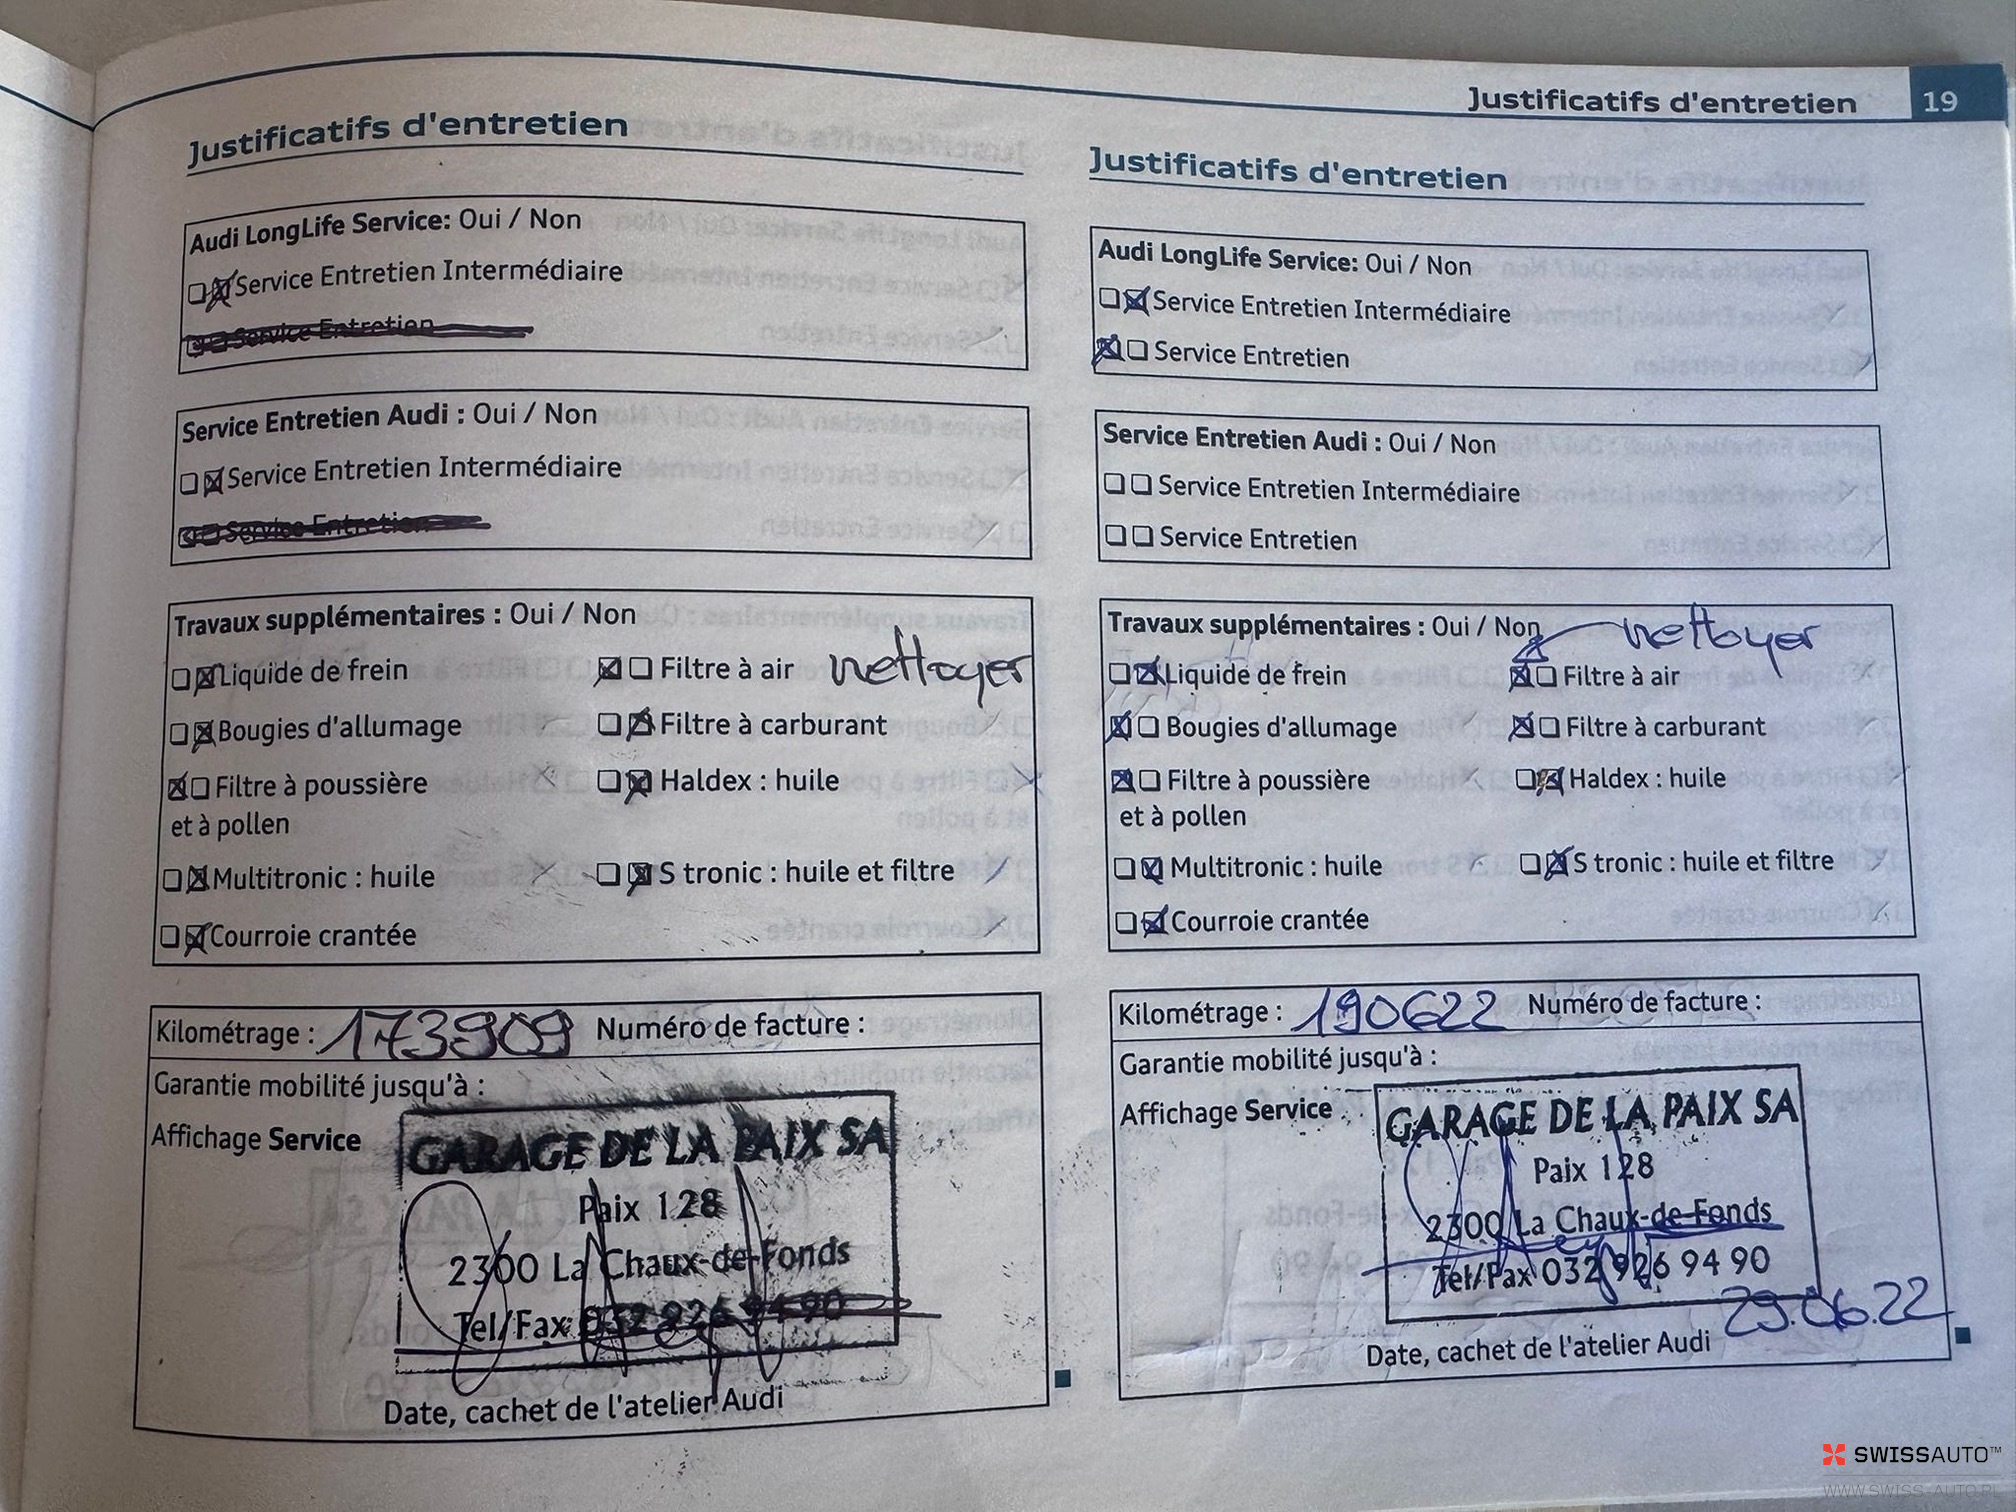 Justificatifs d'entretien 19
Justificatifs d'entretien
Audi LongLife Service: Oui / Non
Service Entretien Intermédiaire
Service Entretien
Service Entretien Audi : Oui / Non
Service Entretien Intermédiaire
Service Entretien
Travaux supplémentaires : Oui / Non
Liquide de frein
Filtre à air nettoyer
Bougies d'allumage
Filtre à carburant
Filtre à poussière
et à pollen
Haldex : huile
Multitronic : huile
S tronic : huile et filtre
Courroie crantée
Kilométrage : 173909 Numéro de facture :
Garantie mobilité jusqu'à :
Affichage Service
GARAGE DE LA PAIX SA
Paix 128
2300 La Chaux-de-Fonds
Tel/Fax 032 926 94 90
Date, cachet de l'atelier Audi
Justificatifs d'entretien
Audi LongLife Service: Oui / Non
Service Entretien Intermédiaire
Service Entretien
Service Entretien Audi : Oui / Non
Service Entretien Intermédiaire
Service Entretien
Travaux supplémentaires : Oui / Non nettoyer
Liquide de frein
Filtre à air
Bougies d'allumage
Filtre à carburant
Filtre à poussière
et à pollen
Haldex : huile
Multitronic : huile
S tronic : huile et filtre
Courroie crantée
Kilométrage : 190622 Numéro de facture :
Garantie mobilité jusqu'à :
Affichage Service
GARAGE DE LA PAIX SA
Paix 128
2300 La Chaux-de-Fonds
Tel/Fax 032 926 94 90
29.06.22
Date, cachet de l'atelier Audi
SWISSAUTO™
WWW.SWISS-AUTO.PL